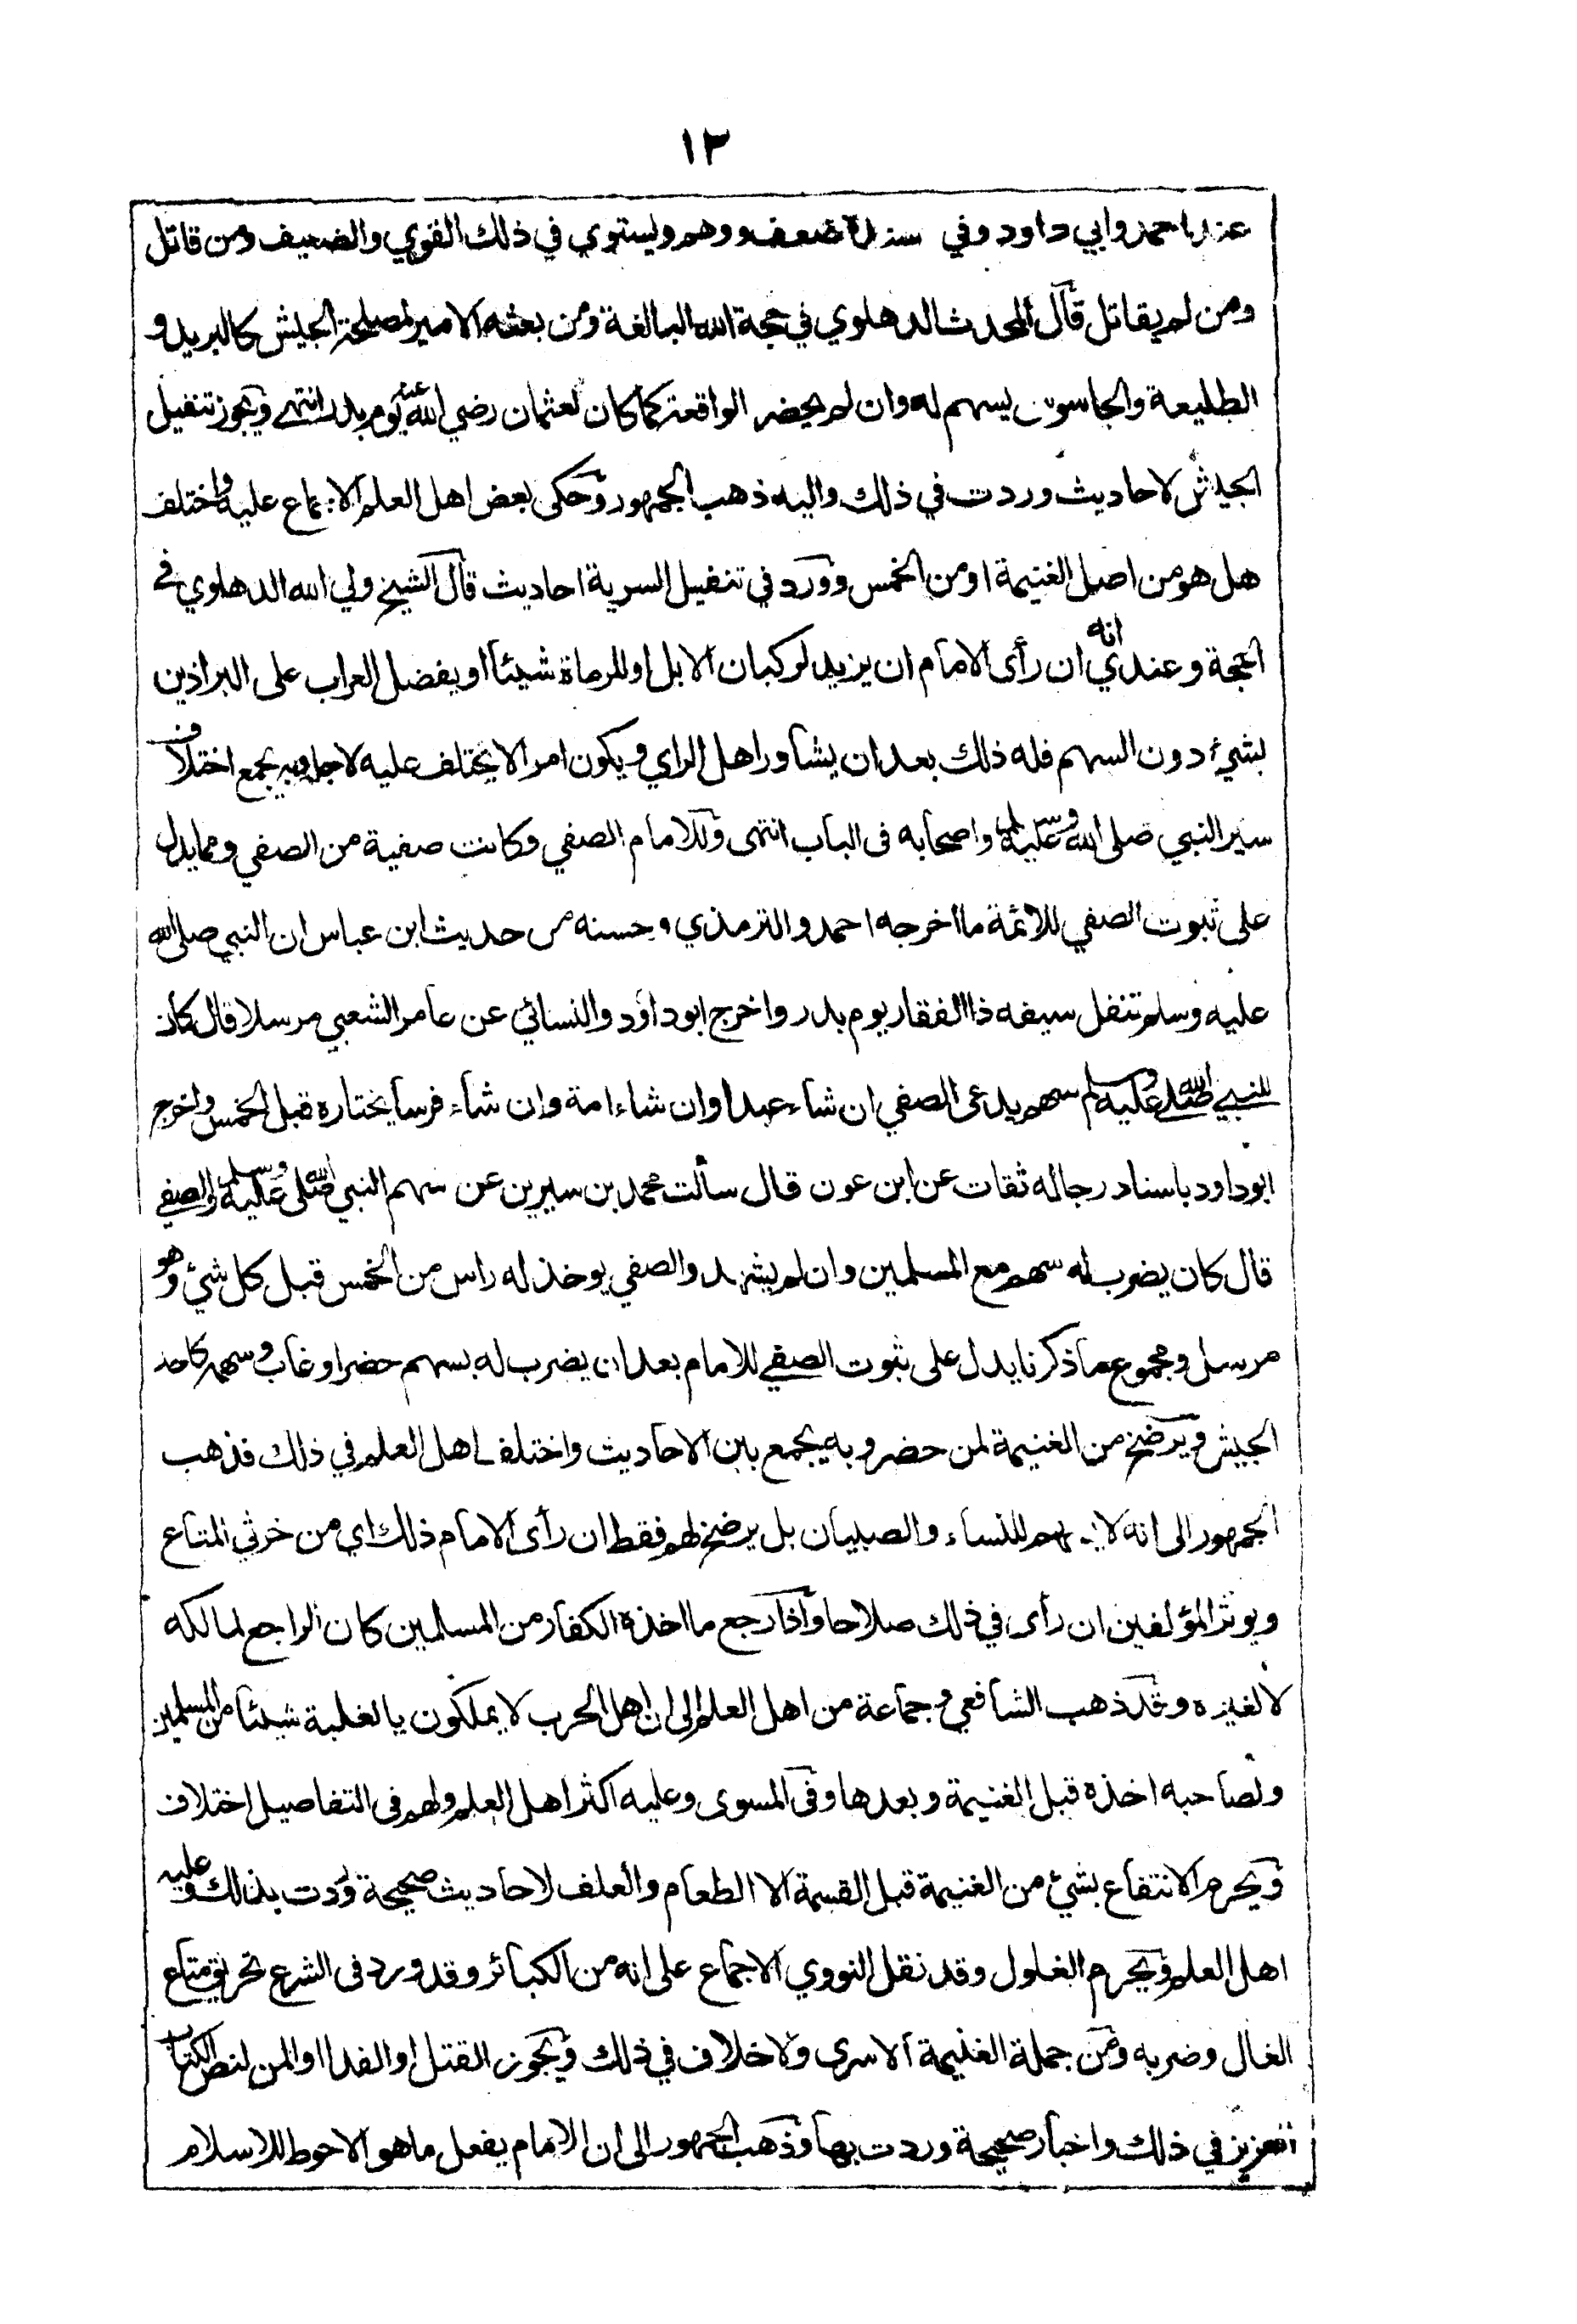 ١٣
عند احمد وابي داود وفي سنده ضعف ووهم ويستوي في ذلك القوي والضعيف ومن قاتل
ومن لم يقاتل قال المحدث الدهلوي في حجة الله البالغة ومن بعثه الامير لمصلحة الجيش كالبريد و
الطليعة والجاسوس يسهم له وان لم يحضر الواقعة كما كان لعثمان رضي الله عنه يوم بدر انتهى ويجوز تنفيل
الجيش لاحاديث وردت في ذلك واليه ذهب الجمهور وحكى بعض اهل العلم الاجماع عليه واختلف
هل هو من اصل الغنيمة او من الخمس وورد في تنفيل السرية احاديث قال الشيخ ولي الله الدهلوي في
الحجة وعندي انه ان رأى الامام ان يزيد لركبان الابل او للرماة شيئا او يفضل العراب على البراذين
بشيء دون السهم فله ذلك بعد ان يشاور اهل الراي ويكون امرا لا يختلف عليه لاجله وبه يجمع اختلاف
سير النبي صلى الله عليه وسلم واصحابه في الباب انتهى وللامام الصفي وكانت صفية من الصفي ومما يدل
على ثبوت الصفي للائمة ما اخرجه احمد والترمذي وحسنه من حديث ابن عباس ان النبي صلى الله
عليه وسلم تنفل سيفه ذا الفقار يوم بدر واخرج ابو داود والنسائي عن عامر الشعبي مرسلا قال كان
للنبي صلى الله عليه وسلم سهم يدعى الصفي ان شاء عبدا وان شاء امة وان شاء فرسا يختاره قبل الخمس واخرج
ابو داود باسناد رجاله ثقات عن ابن عون قال سألت محمد بن سيرين عن سهم النبي صلى الله عليه وسلم والصفي
قال كان يضرب له سهم مع المسلمين وان لم يشهد والصفي يوخذ له راس من الخمس قبل كل شيء وهو
مرسل ومجموع ما ذكرنا يدل على ثبوت الصفي للامام بعد ان يضرب له بسهم حضر او غاب وسهمه كاحد
الجيش ويرضخ من الغنيمة لمن حضر وبه يجمع بين الاحاديث واختلف اهل العلم في ذلك فذهب
الجمهور الى انه لا يسهم للنساء والصبيان بل يرضخ لهم فقط ان رأى الامام ذلك اي من خرثي المتاع
ويوثر المؤلفين ان رأى في ذلك صلاحا واذا رجع ما اخذه الكفار من المسلمين كان الراجع لمالكه
لا لغيره وقد ذهب الشافعي وجماعة من اهل العلم الى ان اهل الحرب لا يملكون بالغلبة شيئا من المسلمين
ولصاحبه اخذه قبل الغنيمة وبعدها وفي المسوى وعليه اكثر اهل العلم ولهم في التفاصيل اختلاف
ويحرم الانتفاع بشيء من الغنيمة قبل القسمة الا الطعام والعلف لاحاديث صحيحة وردت بذلك وعليه
اهل العلم ويحرم الغلول وقد نقل النووي الاجماع على انه من الكبائر وقد ورد في الشرع تحريق متاع
الغال وضربه ومن جملة الغنيمة الاسرى ولا خلاف في ذلك ويجوز القتل او الفدا او المن لنص الكتاب
العزيز في ذلك واخبار صحيحة وردت بها وذهب الجمهور الى ان الامام يفعل ما هو الاحوط للاسلام